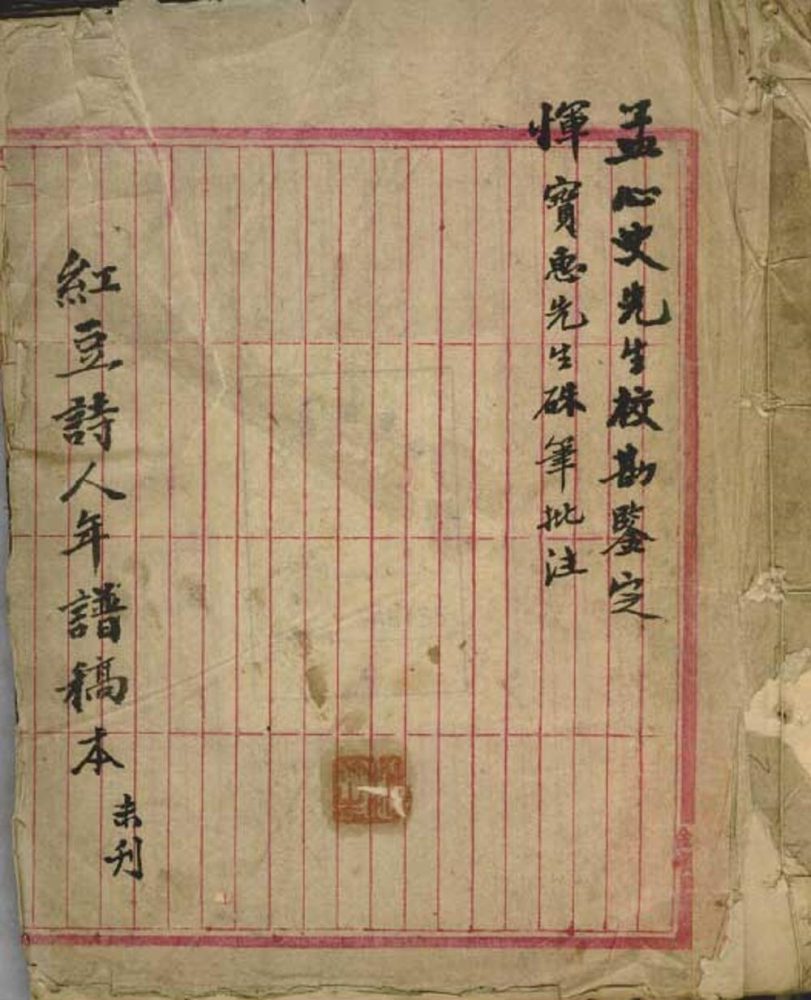 孟心史先生校勘鑒定
惲寶惠先生硃筆批注
紅豆詩人年譜稿本
未刊